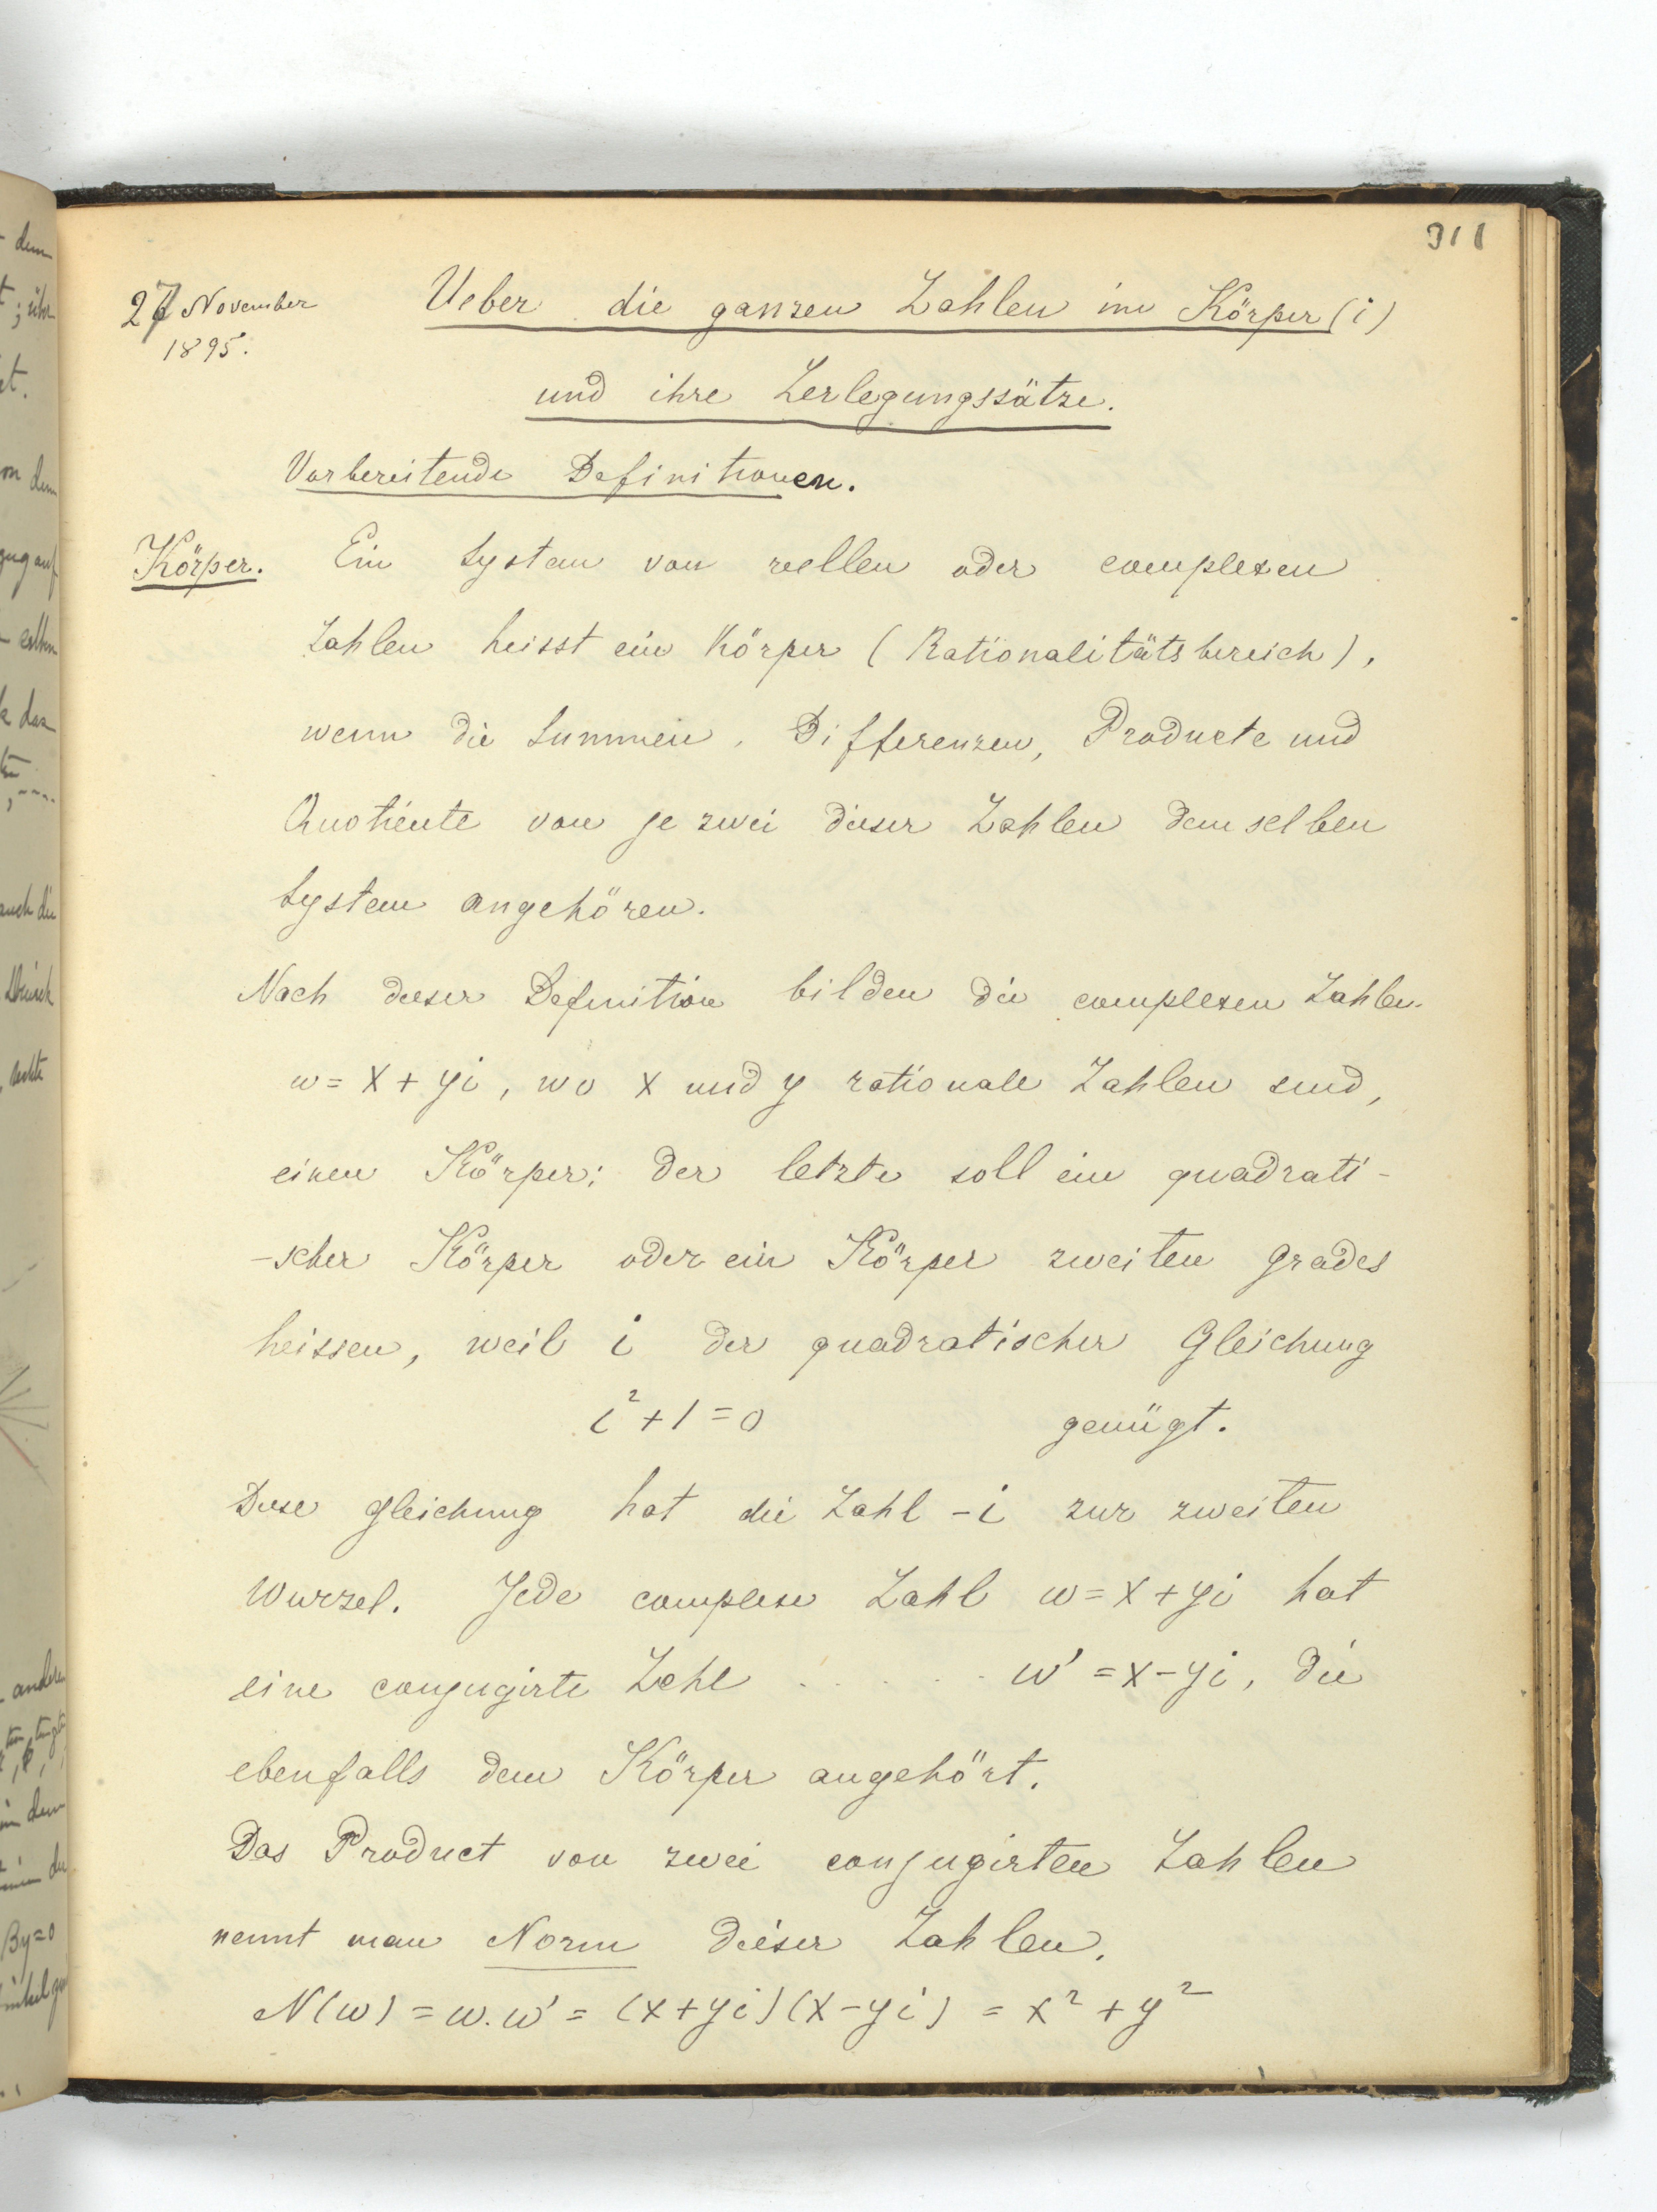 311
27 November
1895.
Ueber die ganzen Zahlen im Körper (i)
und ihre Zerlegungssätze.
Vorbereitende Definitionen.
Körper. Ein System von reellen oder complexen
Zahlen heisst ein Körper (Rationalitätsbereich),
wenn die Summen, Differenzen, Producte und
Quotiente von je zwei dieser Zahlen demselben
System angehören.
Nach dieser Definition bilden die complexen Zahlen
w = x + yi, wo x und y rationale Zahlen sind,
einen Körper; der letzte soll ein quadrati-
-scher Körper oder ein Körper zweiten Grades
heissen, weil i der quadratischer Gleichung
i² + 1 = 0 genügt.
Diese Gleichung hat die Zahl -i zur zweiten
Wurzel. Jede complexe Zahl w = x + yi hat
eine conjugirte Zahl . . . . . . w' = x - yi, die
ebenfalls dem Körper angehört.
Das Product von zwei conjugirten Zahlen
nennt man Norm dieser Zahlen.
N(w) = w. w' = (x + yi)(x - yi) = x² + y²